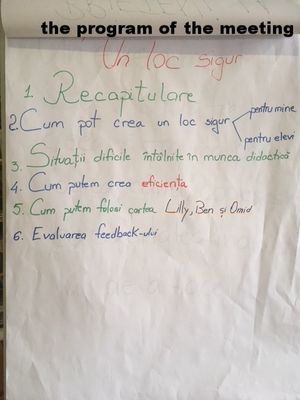 the program of the meeting
Un loc sigur
1. Recapitulare
2. Cum pot crea un loc sigur
pentru mine
pentru elevi
3. Situații dificile întâlnite în munca didactică
4. Cum putem crea eficiența
5. Cum putem folosi cartea Lilly, Ben și Omid
6. Evaluarea feedback-ului